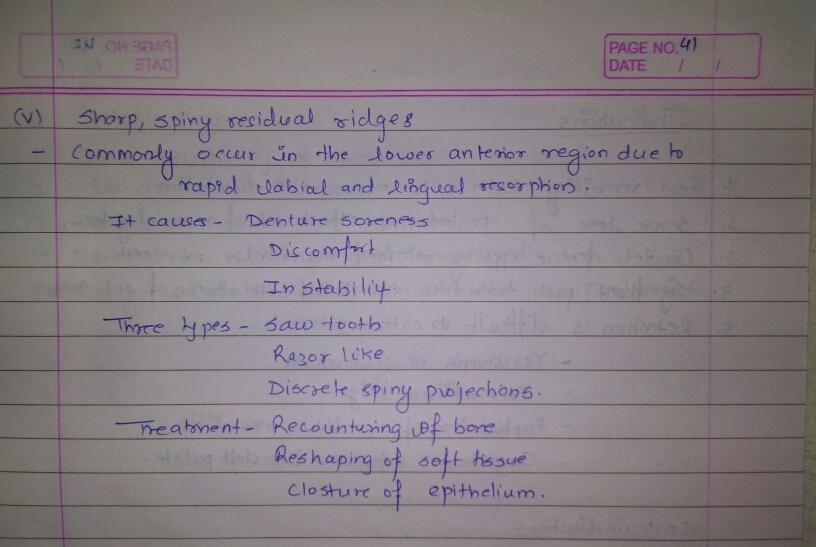 PAGE NO. 41
DATE / /
(V) Sharp, spiny residual ridges
- Commonly occur in the lower anterior region due to
rapid labial and lingual resorption.
It causes - Denture soreness
Discomfort
Instability
Three types - Saw tooth
Razor like
Discrete spiny projections.
Treatment - Recounturing of bone
Reshaping of soft tissue
Closture of epithelium.